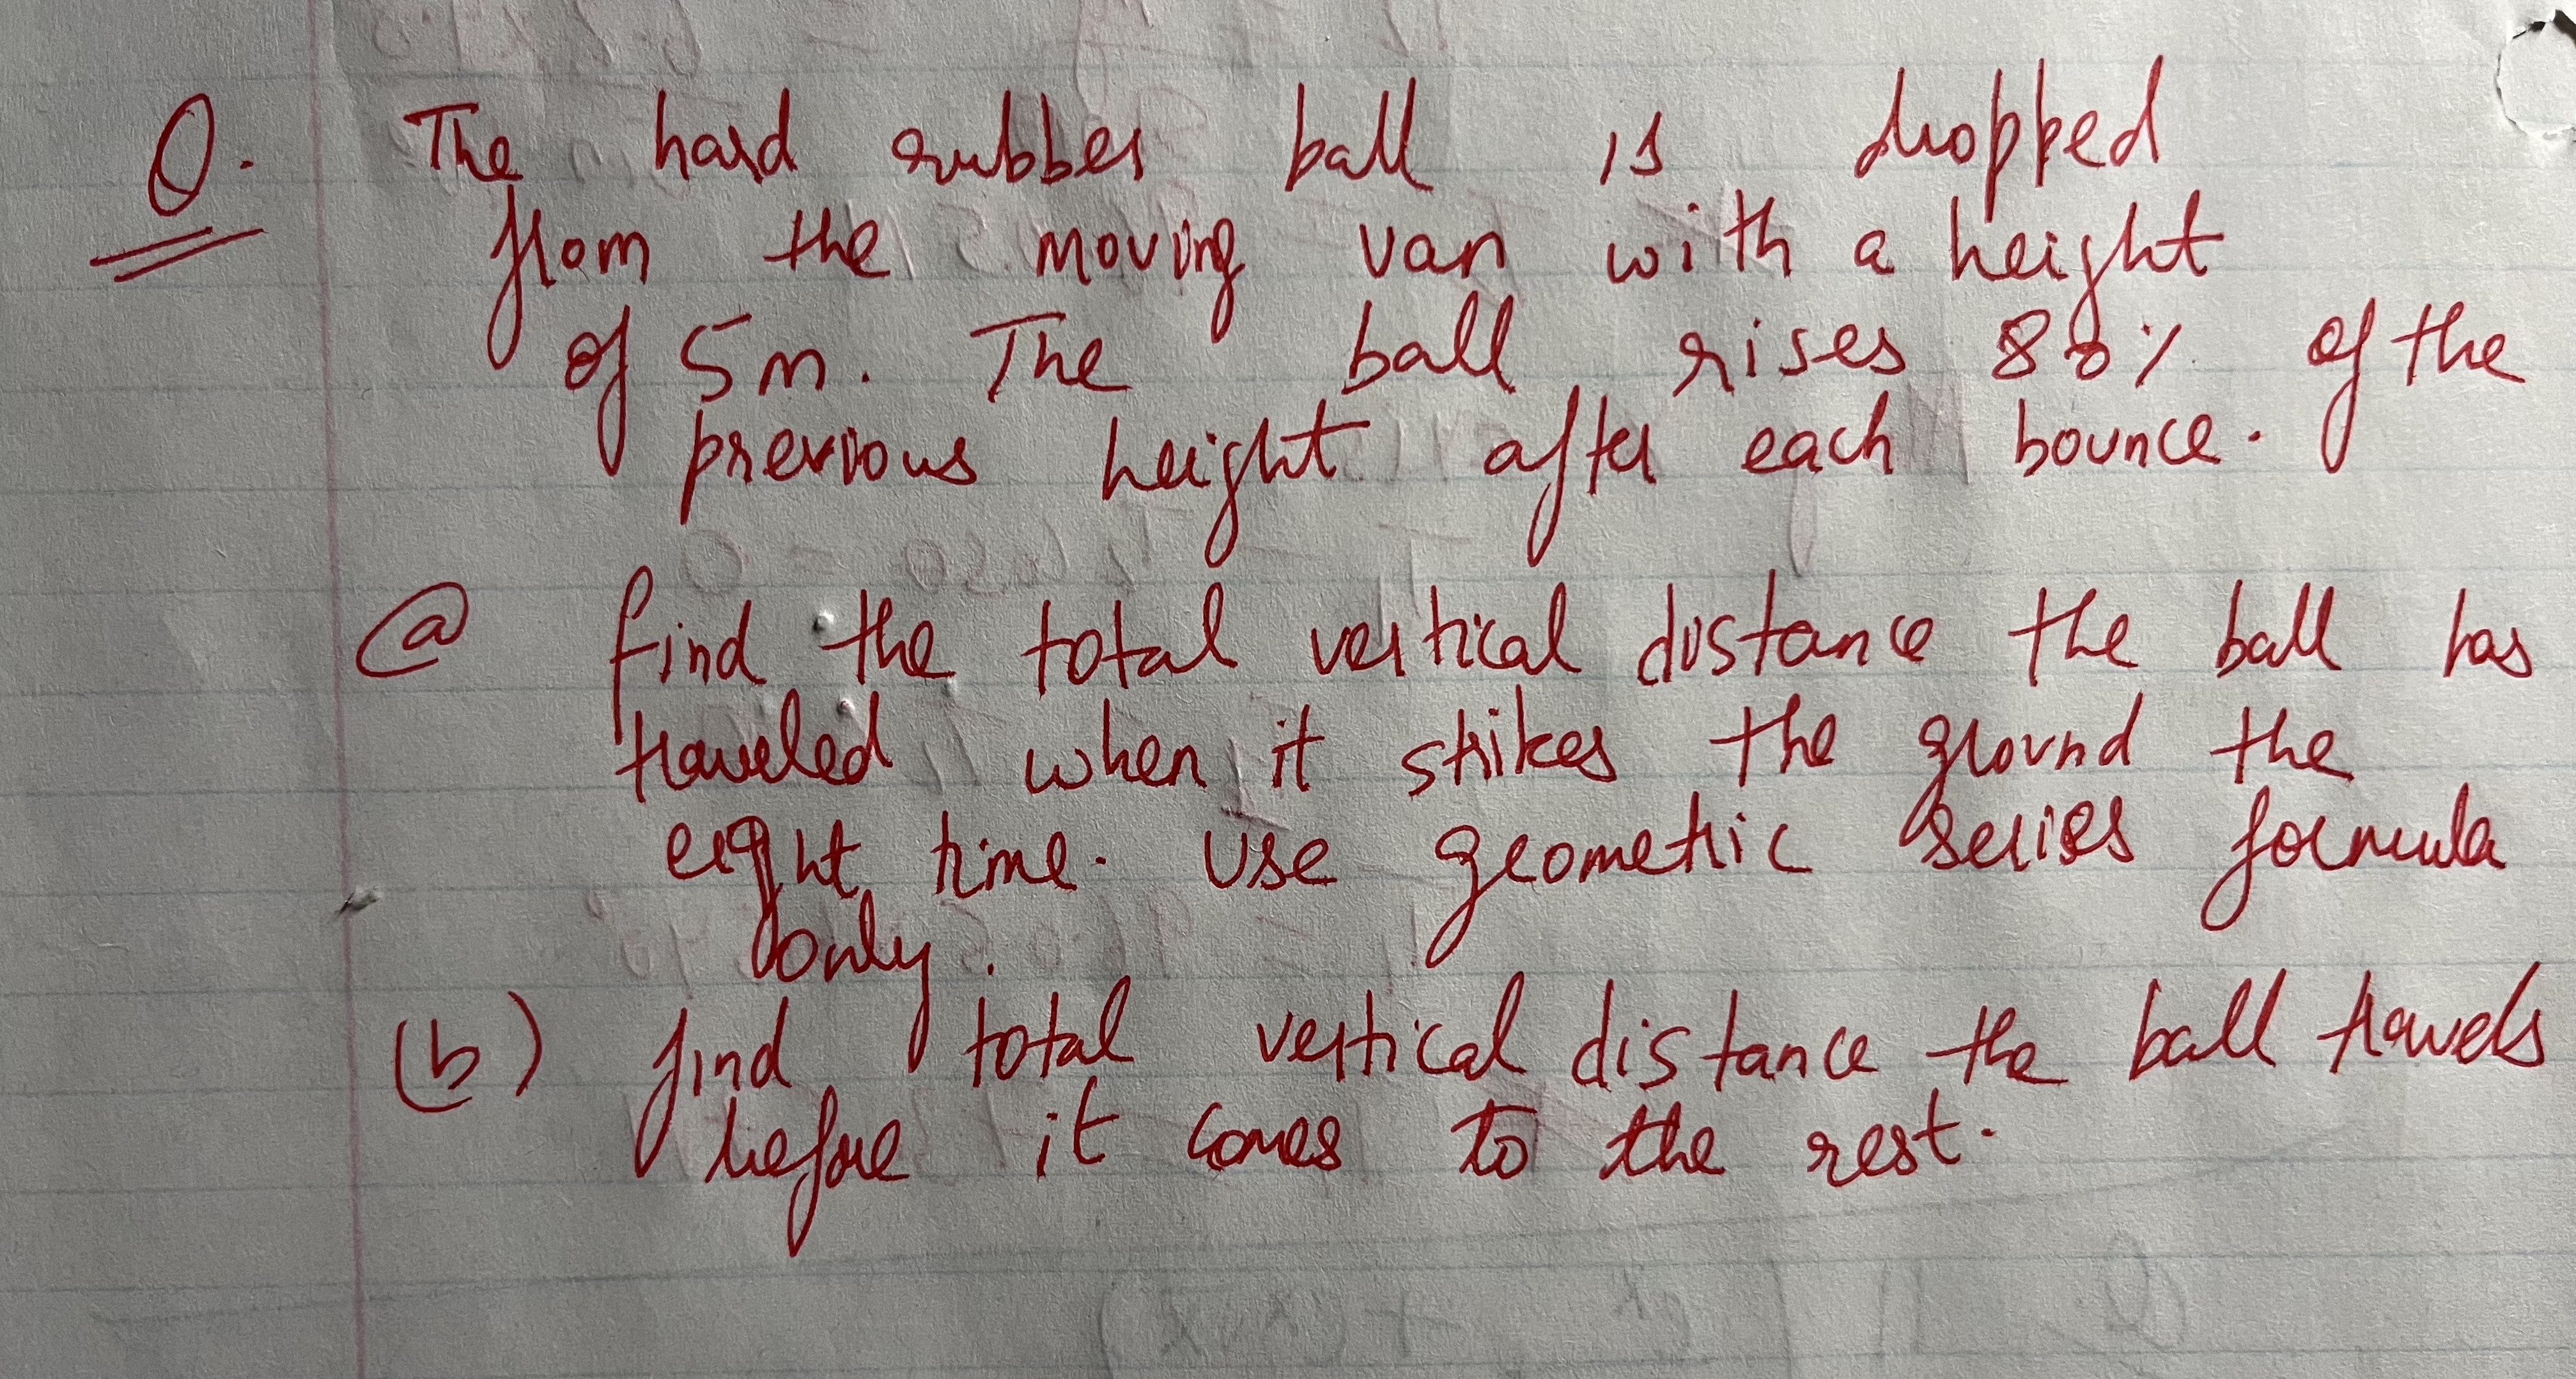 Q. The hard rubber ball is dropped
from the moving van with a height
of 5m. The ball rises 80% of the
previous height after each bounce.
(a) find the total vertical distance the ball has
traveled when it strikes the ground the
eight time. Use geometric series formula
only.
(b) find total vertical distance the ball travels
before it comes to the rest.